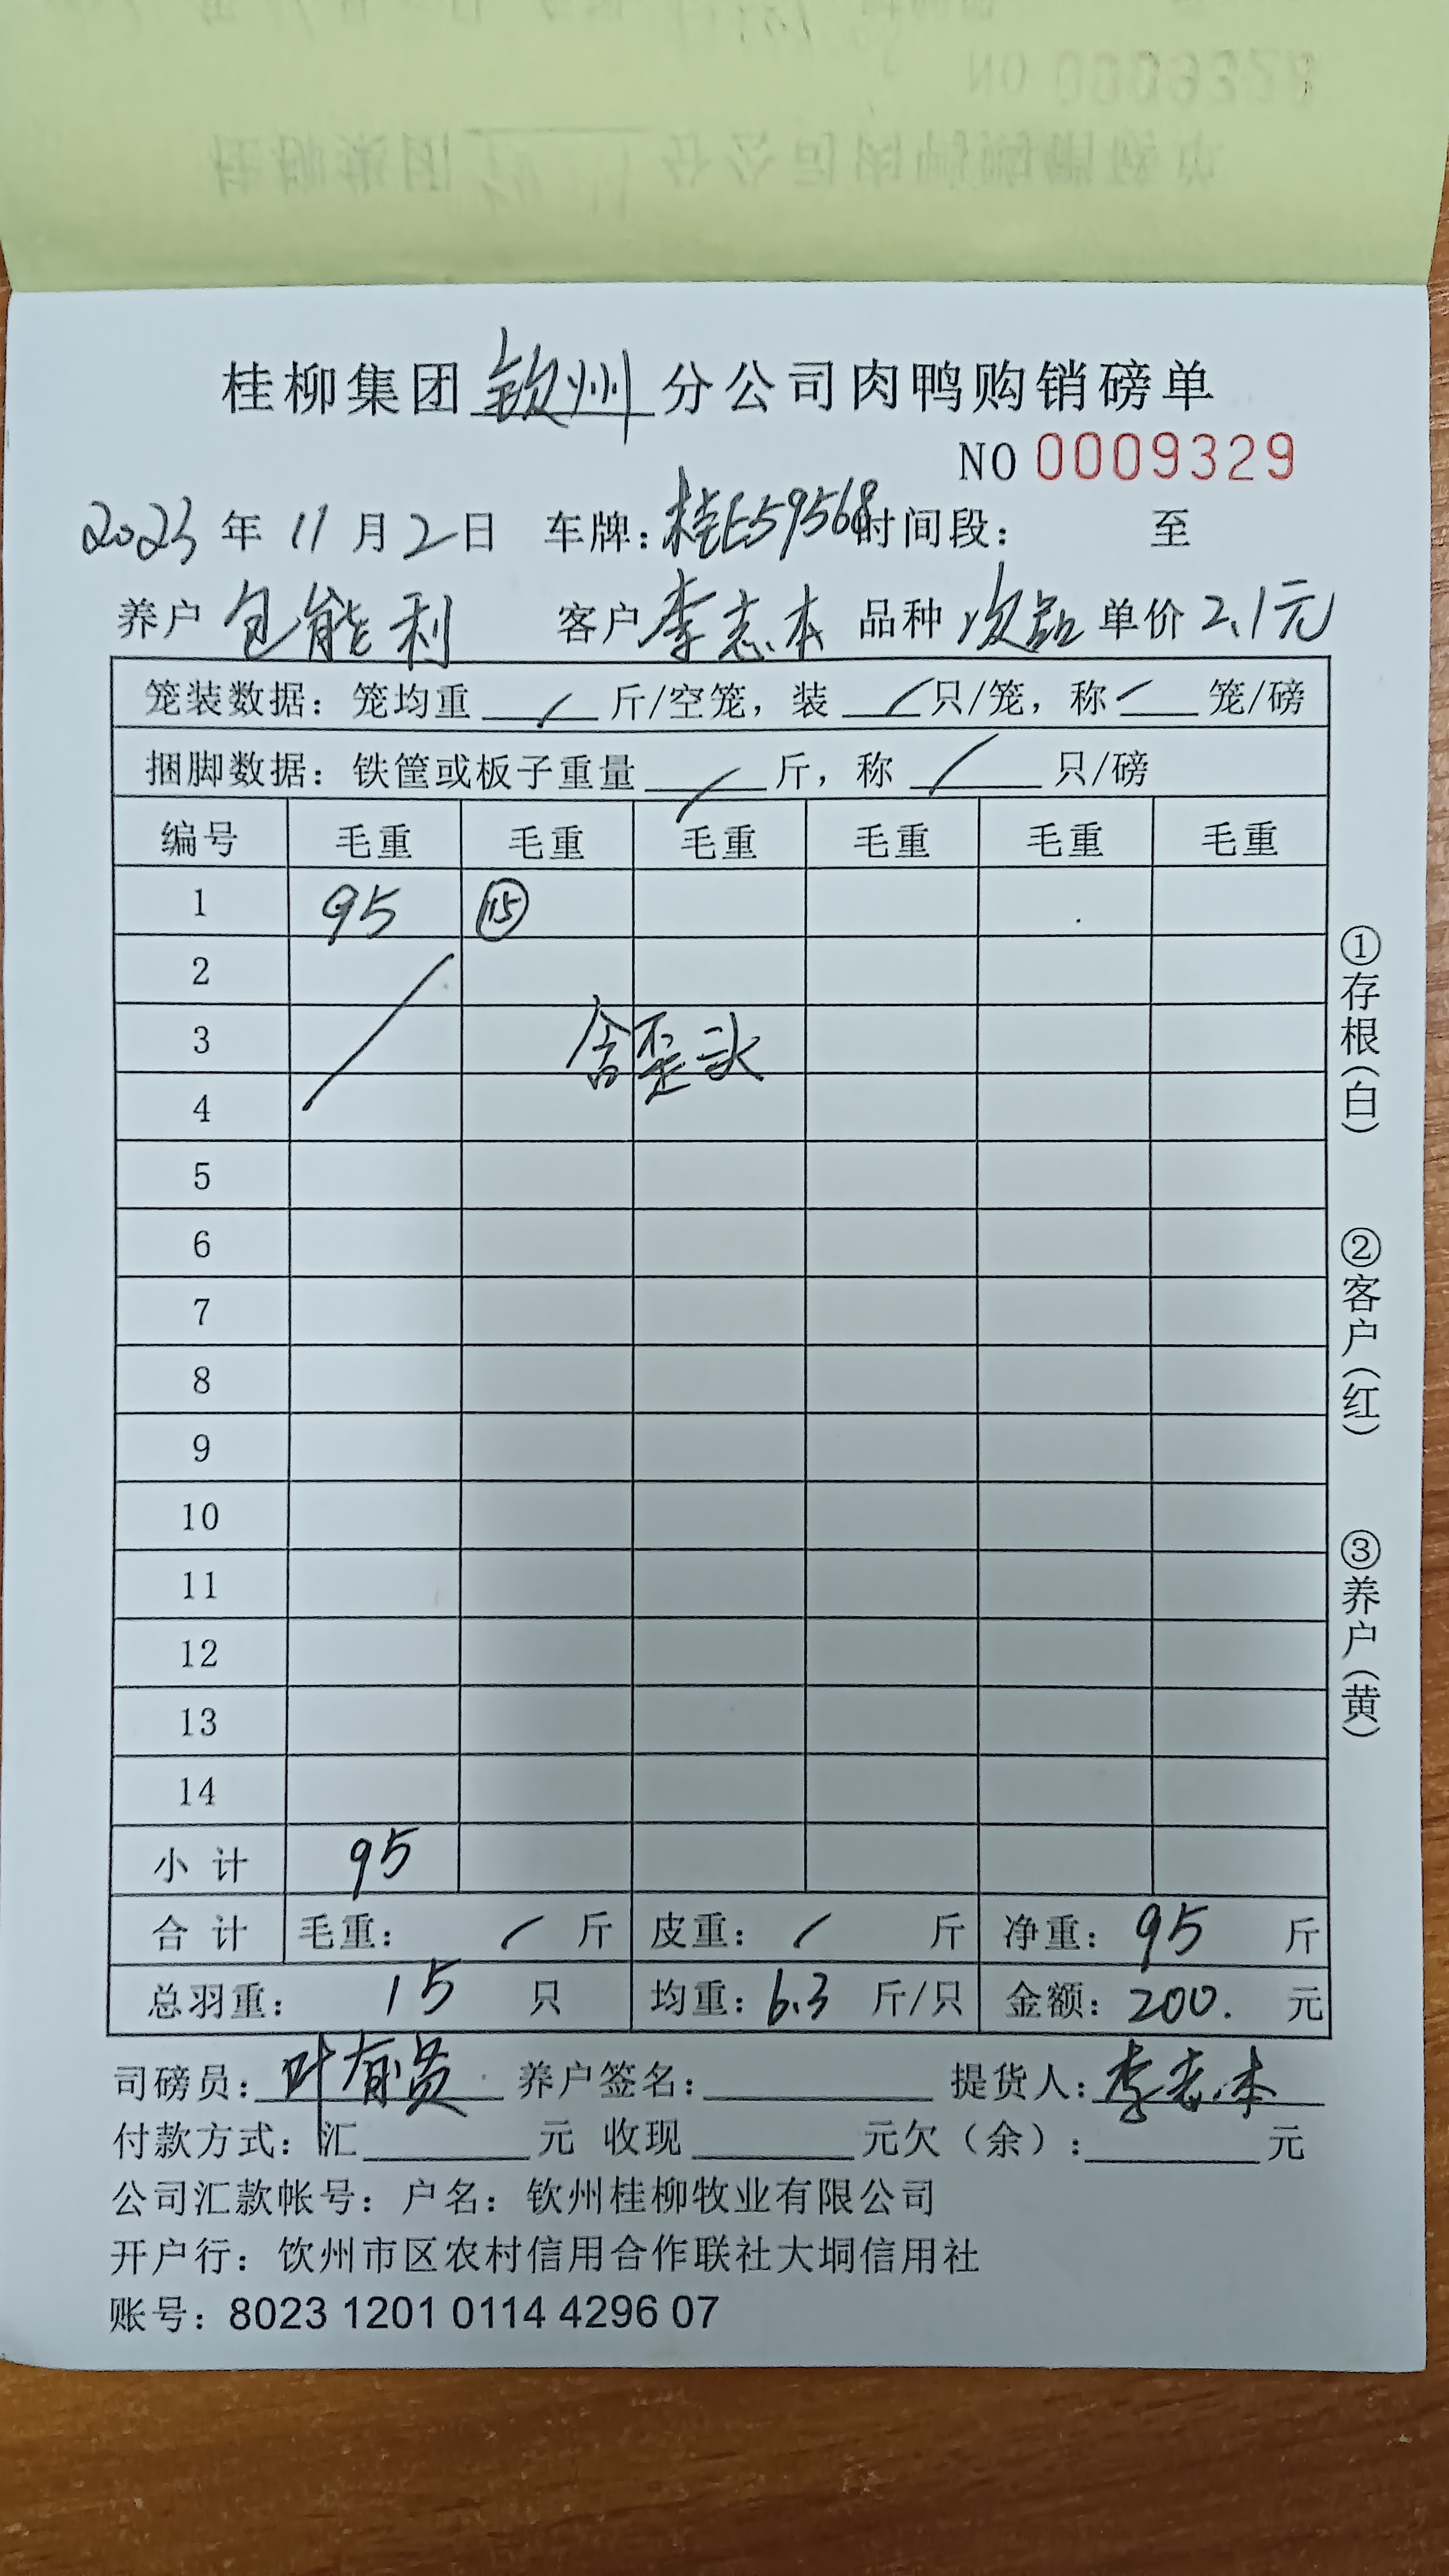 桂柳集团钦州分公司肉鸭购销磅单
NO 0009329
2023年11月2日 车牌:桂E59568 时间段: 至
养户 包能利 客户 李志本 品种 次品 单价 2.1元
笼装数据: 笼均重 / 斤/空笼, 装 / 只/笼, 称 / 笼/磅
捆脚数据: 铁筐或板子重量 / 斤, 称 / 只/磅
编号 毛重 毛重 毛重 毛重 毛重 毛重
1 95 ⑮
2
3 含歪头
4
5
6
7
8
9
10
11
12
13
14
小计 95
合计 毛重: / 斤 皮重: / 斤 净重: 95 斤
总羽重: 15 只 均重: 6.3 斤/只 金额: 200. 元
司磅员: 叶有员 养户签名: 提货人: 李志本
付款方式: 汇 元 收现 元欠(余): 元
公司汇款帐号: 户名: 钦州桂柳牧业有限公司
开户行: 钦州市区农村信用合作联社大垌信用社
账号: 8023 1201 0114 4296 07
①存根(白)
②客户(红)
③养户(黄)